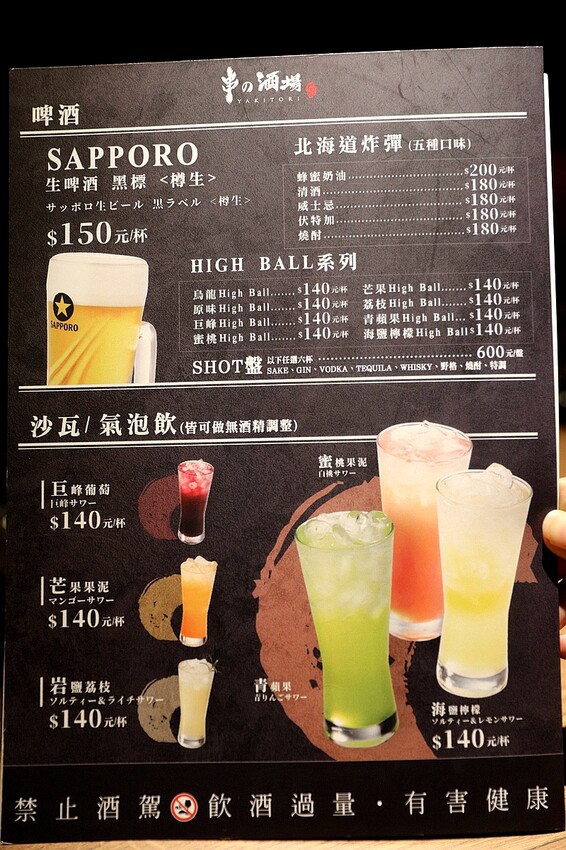 串の酒場
YAKITORI
啤酒
SAPPORO
生啤酒 黑標 <樽生>
サッポロ生ビール 黒ラベル <樽生>
$150元/杯
SAPPORO
北海道炸彈(五種口味)
蜂蜜奶油 $200元/杯
清酒 $180元/杯
威士忌 $180元/杯
伏特加 $180元/杯
燒酎 $180元/杯
HIGH BALL系列
烏龍High Ball $140元/杯
原味High Ball $140元/杯
巨峰High Ball $140元/杯
蜜桃High Ball $140元/杯
芒果High Ball $140元/杯
荔枝High Ball $140元/杯
青蘋果High Ball $140元/杯
海鹽檸檬High Ball $140元/杯
SHOT盤 以下任選六杯 600元/盤
SAKE、GIN、VODKA、TEQUILA、WHISKY、野格、燒酎、特調
沙瓦/氣泡飲(皆可做無酒精調整)
巨峰葡萄
巨峰サワー
$140元/杯
芒果果泥
マンゴーサワー
$140元/杯
岩鹽荔枝
ソルティー&ライチサワー
$140元/杯
蜜桃果泥
白桃サワー
青蘋果
青りんごサワー
海鹽檸檬
ソルティー&レモンサワー
$140元/杯
禁止酒駕 飲酒過量・有害健康